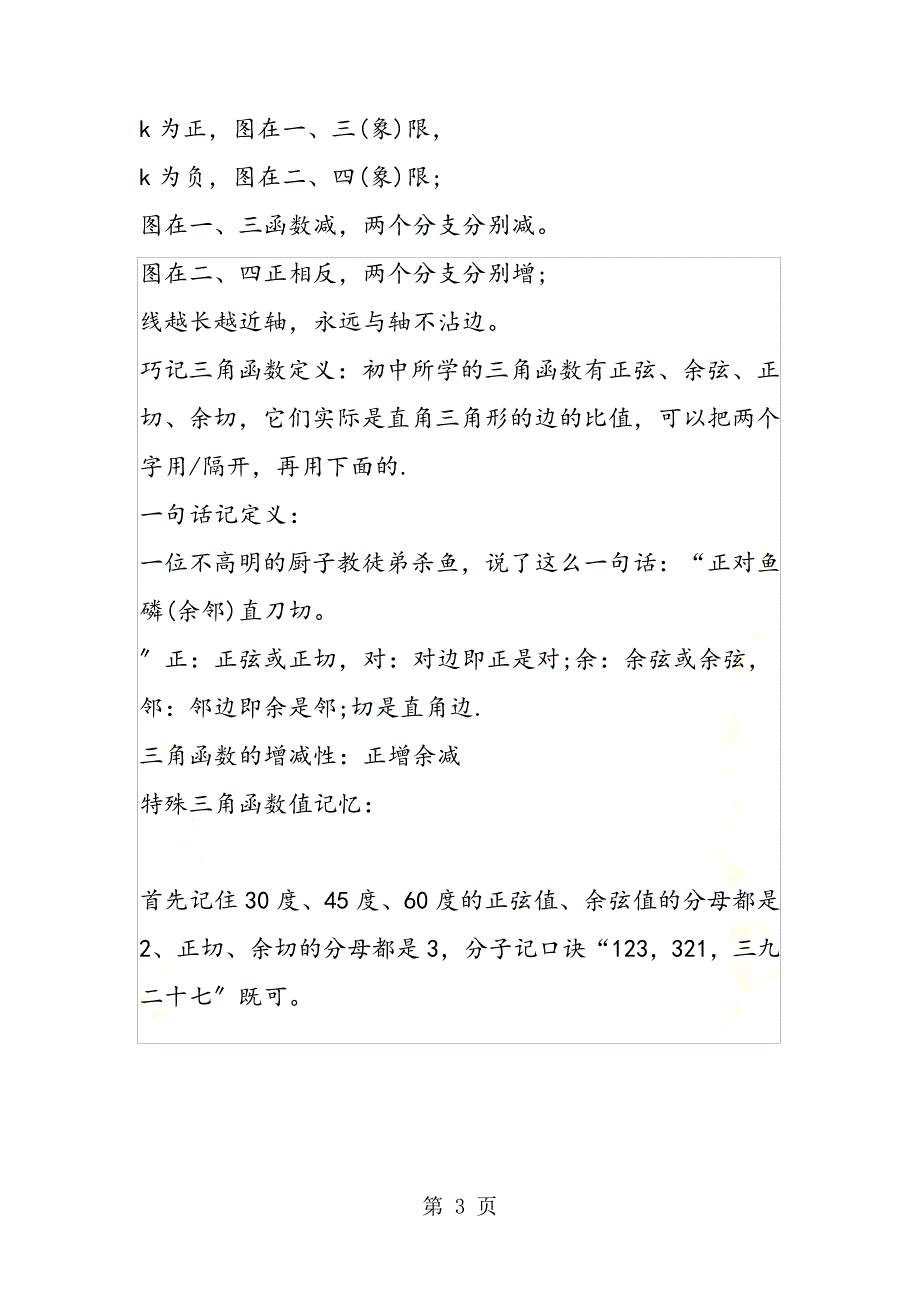 k 为正，图在一、三(象)限，
k 为负，图在二、四(象)限；
图在一、三函数减，两个分支分别减。
图在二、四正相反，两个分支分别增；
线越长越近轴，永远与轴不沾边。
巧记三角函数定义：初中所学的三角函数有正弦、余弦、正
切、余切，它们实际是直角三角形的边的比值，可以把两个
字用/隔开，再用下面的.
一句话记定义：
一位不高明的厨子教徒弟杀鱼，说了这么一句话：“正对鱼
磷(余邻)直刀切。
″正：正弦或正切，对：对边即正是对;余：余弦或余弦，
邻：邻边即余是邻;切是直角边.
三角函数的增减性：正增余减
特殊三角函数值记忆：
首先记住 30 度、45 度、60 度的正弦值、余弦值的分母都是
2、正切、余切的分母都是 3，分子记口诀“123，321，三九
二十七″既可。
第 3 页